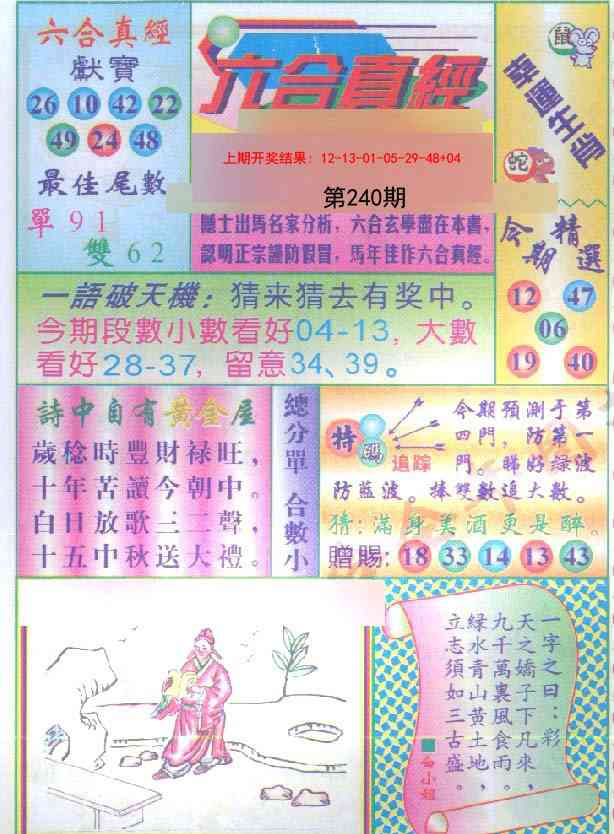 六合真經
獻寶
26 10 42 22
49 24 48
最佳尾數
單 9 1
雙 6 2
六合真經
上期开奖结果：12-13-01-05-29-48+04
第240期
隱士出馬名家分析，六合玄學盡在本書，
認明正宗謹防假冒，馬年佳作六合真經。
鼠
幸運生肖
蛇
今期精選
12 47
06
19 40
一語破天機：猜来猜去有奖中。
今期段數小數看好04-13，大數
看好28-37，留意34、39。
詩中自有黃金屋
歲稔時豐財禄旺，
十年苦讀今朝中。
白日放歌三二聲，
十五中秋送大禮。
總分單 合數小
特碼
追踪
今期預測于第
四門，防第一
門。睇好绿波
防藍波。捧雙數追大數。
猜：滿身美酒更是醉。
贈賜：18 33 14 13 43
一字之曰：彩
天之嬌子下凡來，
九千萬裏風食雨。
緑水青山黃土地，
立志須如三古盛。
白小姐